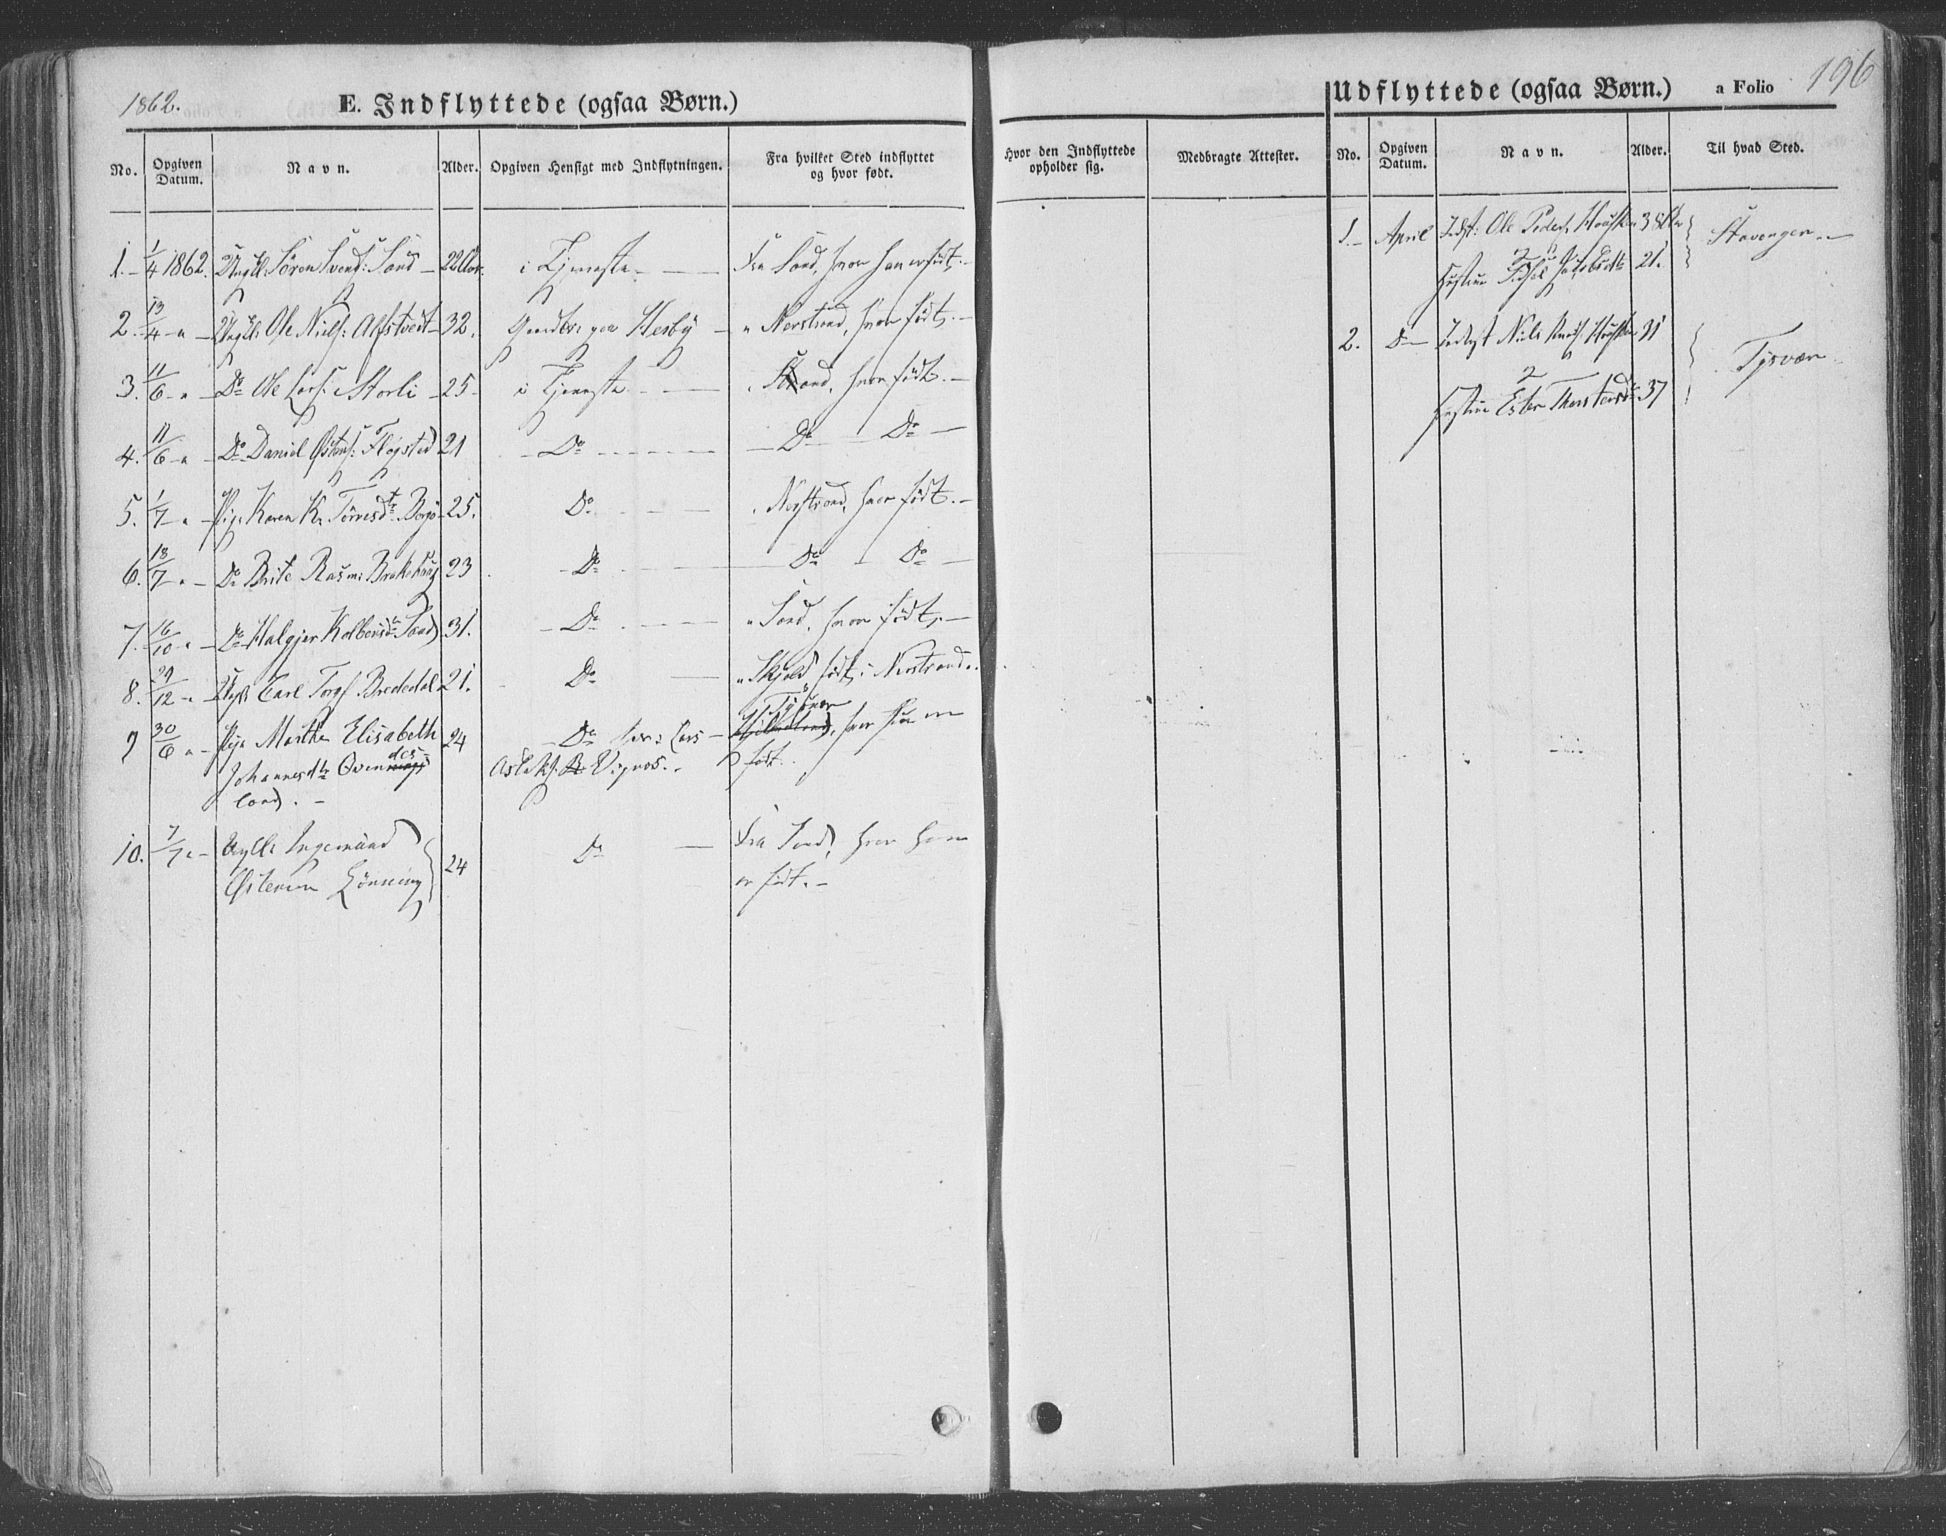 1862.
E. Indflyttede (ogsaa Børn.)
No. Opgiven Datum. Navn. Alder. Opgiven Hensigt med Indflytningen. Fra hvilket Sted indflyttet og hvor født.
1. 1/4 1862. Ungk. Sören Svends: Sand 22 Aar. i Tjeneste Fra Sand, hvor han er født.
2. 13/4 " Ungk. Ole Niels: Alfstveit 32. Hesby " Nerstrand, hvor født.
3. 11/6 " Do Ole Lars: Storli 25 i Tjeneste Sand, hvor født.
4. 11/6 " Do Daniel Østens: Fløgsted 21 Do Do Do
5. 1/7 " Pige Karen K. Tørresdtr 25. Do Nerstrand, hvor født.
6. 13/7 " Do Brite Rasm: 23 Do Do Do
7. 16/10 " Do Halgjer Kolbensdtr Sand 31. Do " Sand, hvor født.
8. 29/12 " Ungk. Carl Torgs: Brededal 21. Do " Skjold født i Nerstrand.
9 30/6 " Pige Marthe Elisabeth 24 Do hos: Lars Tysvær hvor hun er
Johannesdtr Ovendes- Aslaks: Vignæs. født.
land.
10. 7/7 " Ungk. Ingemund 24 Do Fra Sand, hvor han
Østensen Lønning er født.
Hvor den Indflyttede opholder sig. Medbragte Attester.
Udflyttede (ogsaa Børn.) a Folio 196
No. Opgiven Datum. Navn. Alder. Til hvad Sted.
1. April Indst: Ole Peders: 38 Aar Stavanger.
Hustru 21.
2. Do Niels 31 Tysvær
Hustru Ester Thorstensdtr 37